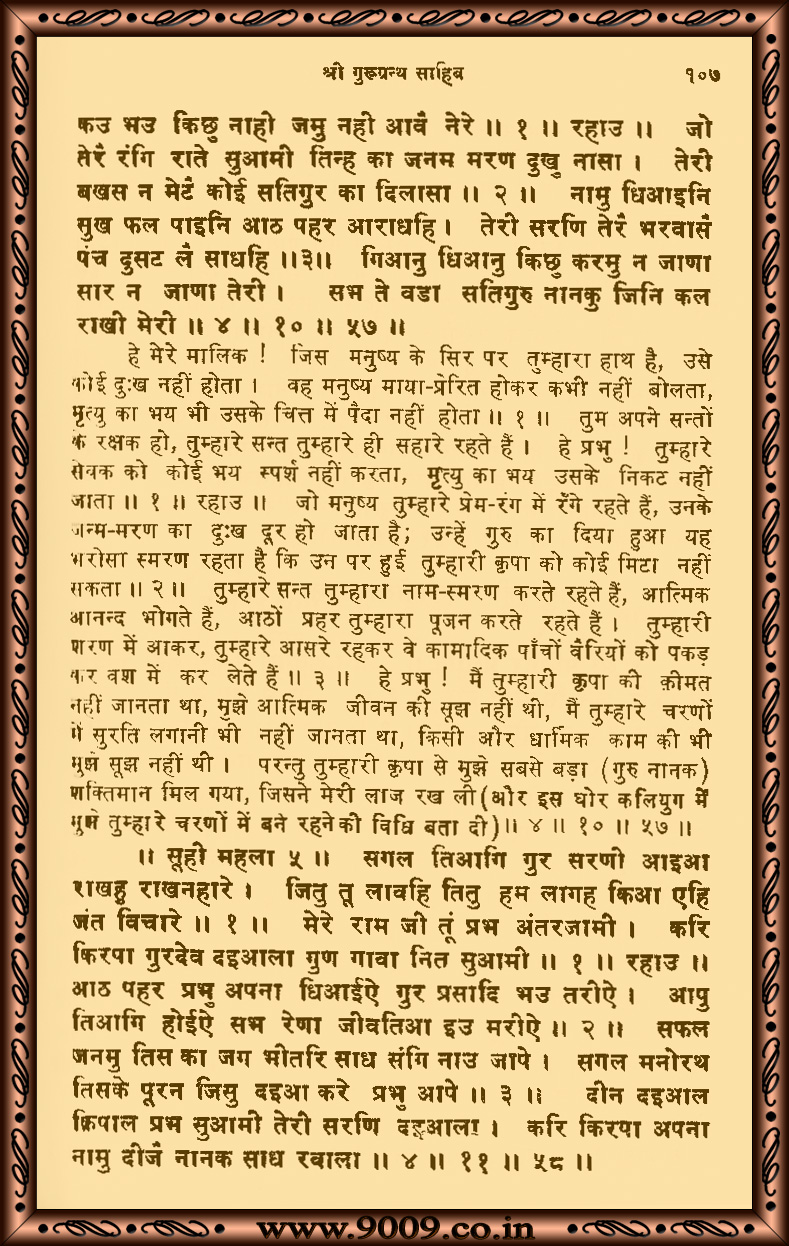 श्री गुरूग्रन्थ साहिब १०७
कउ भउ किछु नाही जमु नही आवै नेरे ॥ १ ॥ रहाउ ॥ जो
तेरै रंगि राते सुआमी तिन्ह का जनम मरण दुखु नासा । तेरी
बखस न मेटै कोई सतिगुर का दिलासा ॥ २ ॥ नामु धिआइनि
सुख फल पाइनि आठ पहर आराधहि । तेरी सरणि तेरै भरवासै
पंच दुसट लै साधहि ॥३॥ गिआनु धिआनु किछु करमु न जाणा
सार न जाणा तेरी । सभ ते वडा सतिगुरु नानकु जिनि कल
राखी मेरी ॥ ४ ॥ १० ॥ ५७ ॥
हे मेरे मालिक ! जिस मनुष्य के सिर पर तुम्हारा हाथ है, उसे
कोई दुःख नहीं होता । वह मनुष्य माया-प्रेरित होकर कभी नहीं बोलता,
मृत्यु का भय भी उसके चित्त में पैदा नहीं होता ॥ १ ॥ तुम अपने सन्तों
के रक्षक हो, तुम्हारे सन्त तुम्हारे ही सहारे रहते हैं । हे प्रभु ! तुम्हारे
सेवक को कोई भय स्पर्श नहीं करता, मृत्यु का भय उसके निकट नहीं
जाता ॥ १ ॥ रहाउ ॥ जो मनुष्य तुम्हारे प्रेम-रंग में रँगे रहते हैं, उनके
जन्म-मरण का दुःख दूर हो जाता है; उन्हें गुरु का दिया हुआ यह
भरोसा स्मरण रहता है कि उन पर हुई तुम्हारी कृपा को कोई मिटा नहीं
सकता ॥ २ ॥ तुम्हारे सन्त तुम्हारा नाम-स्मरण करते रहते हैं, आत्मिक
आनन्द भोगते हैं, आठों प्रहर तुम्हारा पूजन करते रहते हैं । तुम्हारी
शरण में आकर, तुम्हारे आसरे रहकर वे कामादिक पाँचों वैरियों को पकड़
कर वश में कर लेते हैं ॥ ३ ॥ हे प्रभु ! मैं तुम्हारी कृपा की क़ीमत
नहीं जानता था, मुझे आत्मिक जीवन की सूझ नहीं थी, मैं तुम्हारे चरणों
में सुरति लगानी भी नहीं जानता था, किसी और धार्मिक काम की भी
मुझे सूझ नहीं थी । परन्तु तुम्हारी कृपा से मुझे सबसे बड़ा (गुरु नानक)
शक्तिमान मिल गया, जिसने मेरी लाज रख ली (और इस घोर कलियुग में
मुझे तुम्हारे चरणों में बने रहने की विधि बता दी) ॥ ४ ॥ १० ॥ ५७ ॥
॥ सूही महला ५ ॥ सगल तिआगि गुर सरणी आइआ
राखहु राखनहारे । जितु तू लावहि तितु हम लागह किआ एहि
जंत विचारे ॥ १ ॥ मेरे राम जी तूं प्रभ अंतरजामी । करि
किरपा गुरदेव दइआला गुण गावा नित सुआमी ॥ १ ॥ रहाउ ॥
आठ पहर प्रभु अपना धिआईऐ गुर प्रसादि भउ तरीऐ । आपु
तिआगि होईऐ सभ रेणा जीवतिआ इउ मरीऐ ॥ २ ॥ सफल
जनमु तिस का जग भीतरि साध संगि नाउ जापे । सगल मनोरथ
तिसके पूरन जिसु दइआ करे प्रभु आपे ॥ ३ ॥ दीन दइआल
क्रिपाल प्रभ सुआमी तेरी सरणि दइआला । करि किरपा अपना
नामु दीजै नानक साध रवाला ॥ ४ ॥ ११ ॥ ५८ ॥
www.9009.co.in